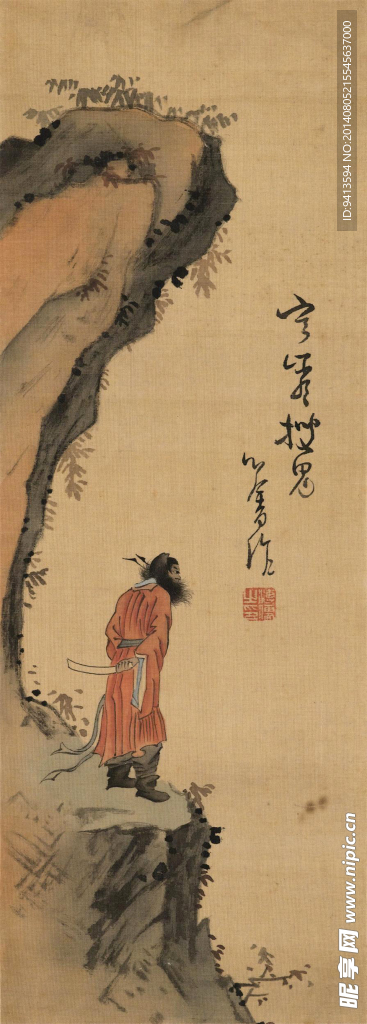 ID:9413594 NO:20140805215545637000
空岩搜鬼
心畬作
昵享网 www.nipic.cn